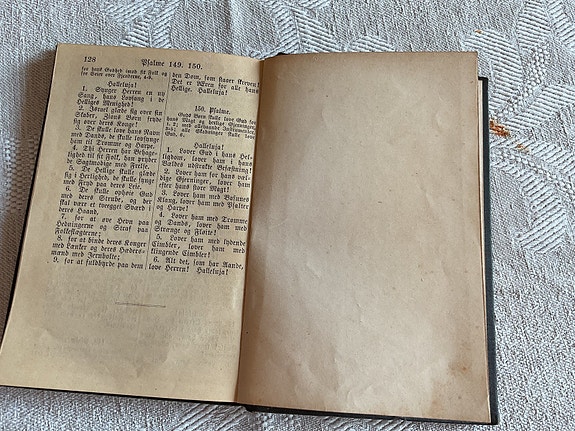 128
Psalme 149. 150.
for hans Godhed imod sit Folk og
for Seier over Fjenderne, 4-9.
Halleluja!
1. Synger Herren en ny
Sang, hans Lovsang i de
Helliges Menighed!
2. Israel glæde sig over sin
Skaber, Zions Børn fryde
sig over deres Konge!
3. De skulle love hans Navn
med Dands, de skulle lovsynge
ham til Tromme og Harpe.
4. Thi Herren har Behage-
lighed til sit Folk, han pryder
de Sagtmodige med Frelse.
5. De Hellige skulle glæde
sig i Herlighed, de skulle synge
med Fryd paa deres Leie.
6. De skulle ophøie Gud
med deres Strube, og der
skal være et tveegget Sværd i
deres Haand,
7. for at øve Hevn paa
Hedningerne og Straf paa
Folkeslægterne;
8. for at binde deres Konger
med Lænker og deres Hæders-
mænd med Jernbolte;
9. for at fuldbyrde paa dem
den Dom, som staaer skreven!
Det er Æren for alle hans
Hellige. Halleluja!
150. Psalme.
Guds Børn skulle love Gud for
hans Magt og herlige Gjerninger,
1. 2; med allehaande Instrumenter,
3-5; alle Skabninger skulle love
Gud, 6.
Halleluja!
1. Lover Gud i hans Hel-
ligdom, lover ham i hans
Vældes udstrakte Befæstning!
2. Lover ham for hans vel-
dige Gjerninger, lover ham
efter hans store Magt!
3. Lover ham med Basunes
Klang, lover ham med Psalter
og Harpe!
4. Lover ham med Tromme
og Dands, lover ham med
Strenge og Fløite!
5. Lover ham med lydende
Cimbler, lover ham med
klingende Cimbler!
6. Alt det, som har Aande,
love Herren! Halleluja!